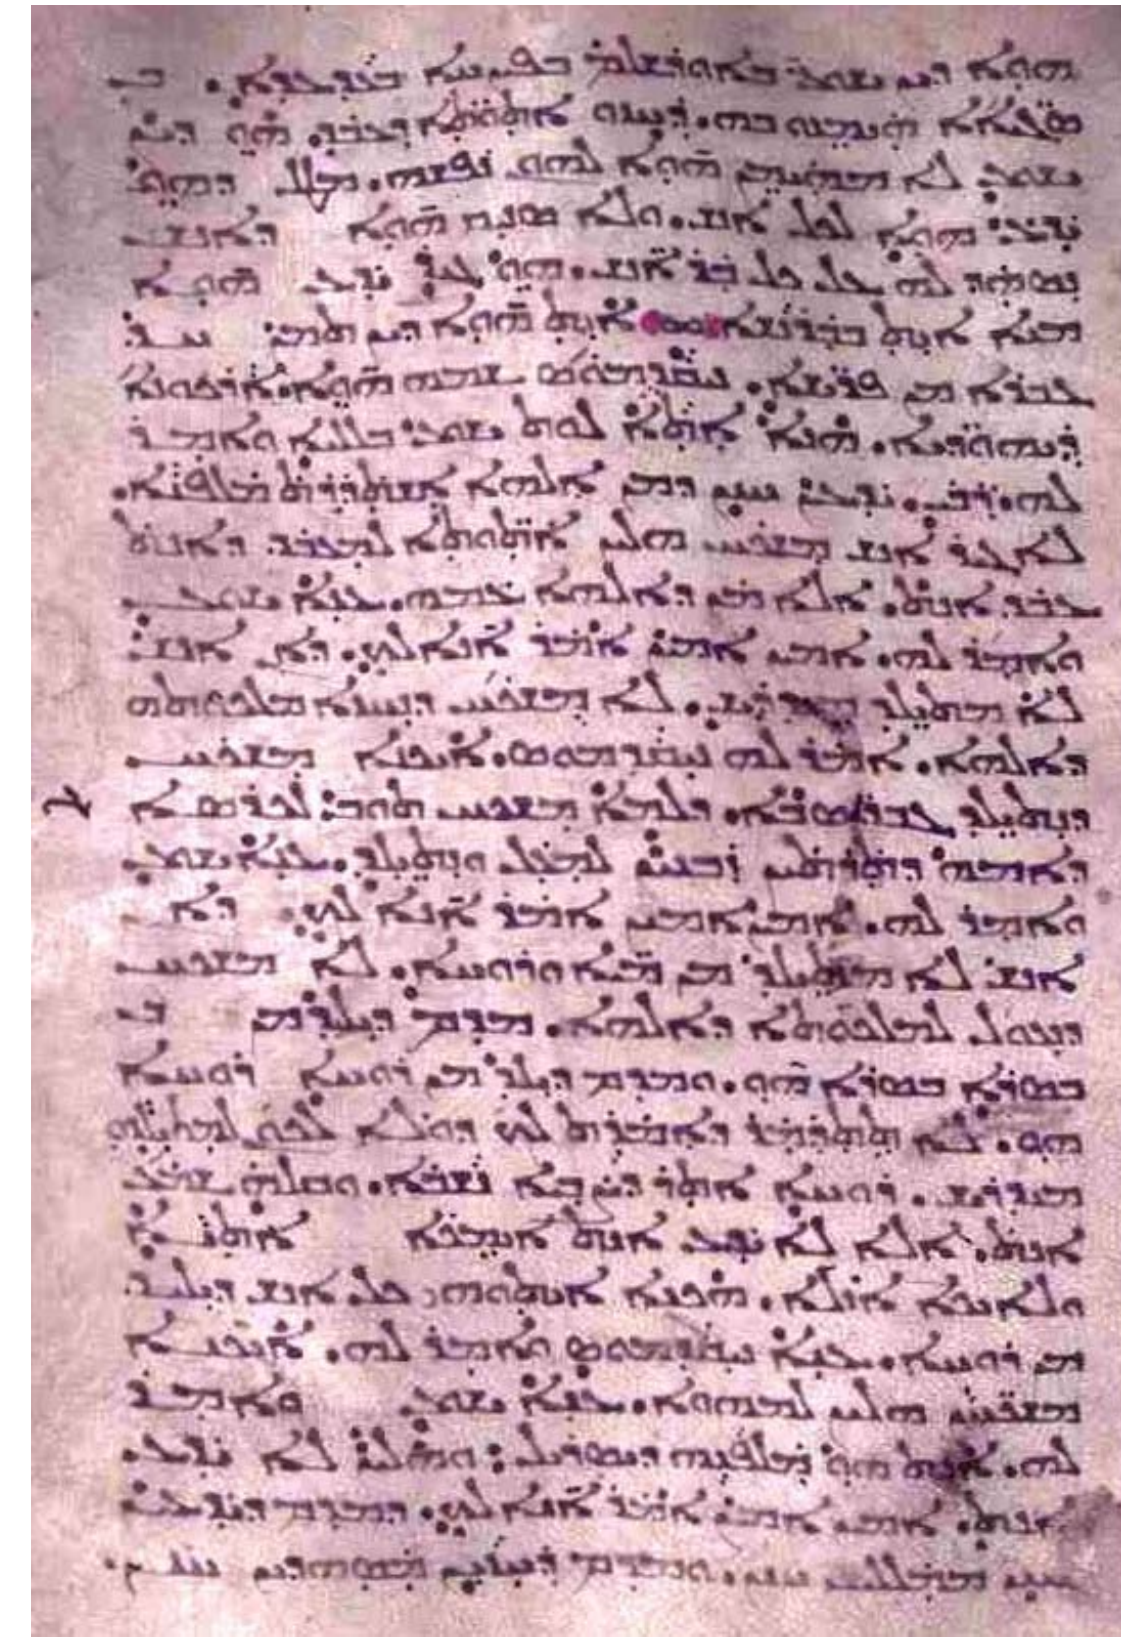 ܗܘܐ ܕܝܢ ܝܫܘܥ ܒܐܘܪܫܠܡ ܒܦܨܚܐ ܒܥܕܥܕܐ.
ܣܓܝܐܐ ܗܝܡܢܘ ܒܗ. ܕܚܙܘ ܐܬܘܬܐ ܕܥܒܕ. ܗܘ ܕܝܢ
ܝܫܘܥ ܠܐ ܡܗܝܡܢ ܗܘܐ ܠܗܘܢ ܢܦܫܗ. ܡܛܠ ܕܗܘ
ܝܕܥ ܗܘܐ ܠܟܠ ܐܢܫ. ܘܠܐ ܣܢܝܩ ܗܘܐ ܕܐܢܫ
ܢܣܗܕ ܠܗ ܥܠ ܟܠ ܒܪ ܐܢܫ. ܗܘ ܓܝܪ ܝܕܥ ܗܘܐ
ܡܢܐ ܐܝܬ ܒܒܪܢܫܐ ܀ ܐܝܬ ܗܘܐ ܕܝܢ ܬܡܢ ܚܕ
ܓܒܪܐ ܡܢ ܦܪܝܫܐ. ܢܝܩܕܝܡܘܣ ܫܡܗ ܗܘܐ. ܐܪܟܘܢܐ
ܕܝܗܘܕܝܐ. ܗܢܐ ܐܬܐ ܠܘܬ ܝܫܘܥ ܒܠܠܝܐ ܘܐܡܪ
ܠܗ. ܪܒܝ. ܝܕܥܝܢ ܚܢܢ ܕܡܢ ܐܠܗܐ ܐܫܬܕܪܬ ܡܠܦܢܐ.
ܠܐ ܓܝܪ ܐܢܫ ܡܫܟܚ ܗܠܝܢ ܐܬܘܬܐ ܠܡܥܒܕ ܕܐܢܬ
ܥܒܕ ܐܢܬ. ܐܠܐ ܡܢ ܕܐܠܗܐ ܥܡܗ. ܥܢܐ ܝܫܘܥ
ܘܐܡܪ ܠܗ. ܐܡܝܢ ܐܡܝܢ ܐܡܪ ܐܢܐ ܠܟ. ܕܐܢ ܐܢܫ
ܠܐ ܡܬܝܠܕ ܡܢ ܕܪܝܫ. ܠܐ ܡܫܟܚ ܕܢܚܙܐ ܡܠܟܘܬܗ
ܕܐܠܗܐ. ܐܡܪ ܠܗ ܢܝܩܕܝܡܘܣ. ܐܝܟܢܐ ܡܫܟܚ
ܕܢܬܝܠܕ ܓܒܪܐ ܣܒܐ. ܕܠܡܐ ܡܫܟܚ ܬܘܒ ܠܟܪܣܐ
ܕܐܡܗ ܕܬܪܬܝܢ ܙܒܢܝܢ ܠܡܥܠ ܘܢܬܝܠܕ. ܥܢܐ ܝܫܘܥ
ܘܐܡܪ ܠܗ. ܐܡܝܢ ܐܡܝܢ ܐܡܪ ܐܢܐ ܠܟ. ܕܐܢ
ܐܢܫ ܠܐ ܡܬܝܠܕ ܡܢ ܡܝܐ ܘܪܘܚܐ. ܠܐ ܡܫܟܚ
ܕܢܥܘܠ ܠܡܠܟܘܬܐ ܕܐܠܗܐ. ܡܕܡ ܕܝܠܝܕ ܡܢ
ܒܣܪܐ ܒܣܪܐ ܗܘ. ܘܡܕܡ ܕܝܠܝܕ ܡܢ ܪܘܚܐ ܪܘܚܐ
ܗܘ. ܠܐ ܬܬܕܡܪ ܕܐܡܪܬ ܠܟ ܕܘܠܐ ܠܟܘܢ ܠܡܬܝܠܕܘ
ܡܢ ܕܪܝܫ. ܪܘܚܐ ܐܬܪ ܕܨܒܝܐ ܢܫܒܐ. ܘܩܠܗ ܫܡܥ
ܐܢܬ. ܐܠܐ ܠܐ ܝܕܥ ܐܢܬ ܐܝܡܟܐ ܐܬܝܐ
ܘܠܐܝܟܐ ܐܙܠܐ. ܗܟܢܐ ܐܝܬܘܗܝ ܟܠ ܐܢܫ ܕܝܠܝܕ
ܡܢ ܪܘܚܐ. ܥܢܐ ܢܝܩܕܝܡܘܣ ܘܐܡܪ ܠܗ. ܐܝܟܢܐ
ܡܫܟܚܢ ܗܠܝܢ ܠܡܗܘܐ. ܥܢܐ ܝܫܘܥ ܘܐܡܪ
ܠܗ. ܐܢܬ ܗܘ ܡܠܦܢܗ ܕܝܣܪܝܠ: ܘܗܠܝܢ ܠܐ ܝܕܥ
ܐܢܬ. ܐܡܝܢ ܐܡܝܢ ܐܡܪ ܐܢܐ ܠܟ. ܕܡܕܡ ܕܝܕܥܝܢ
ܚܢܢ ܡܡܠܠܝܢ ܚܢܢ. ܘܡܕܡ ܕܚܙܝܢ ܡܣܗܕܝܢ ܚܢܢ.